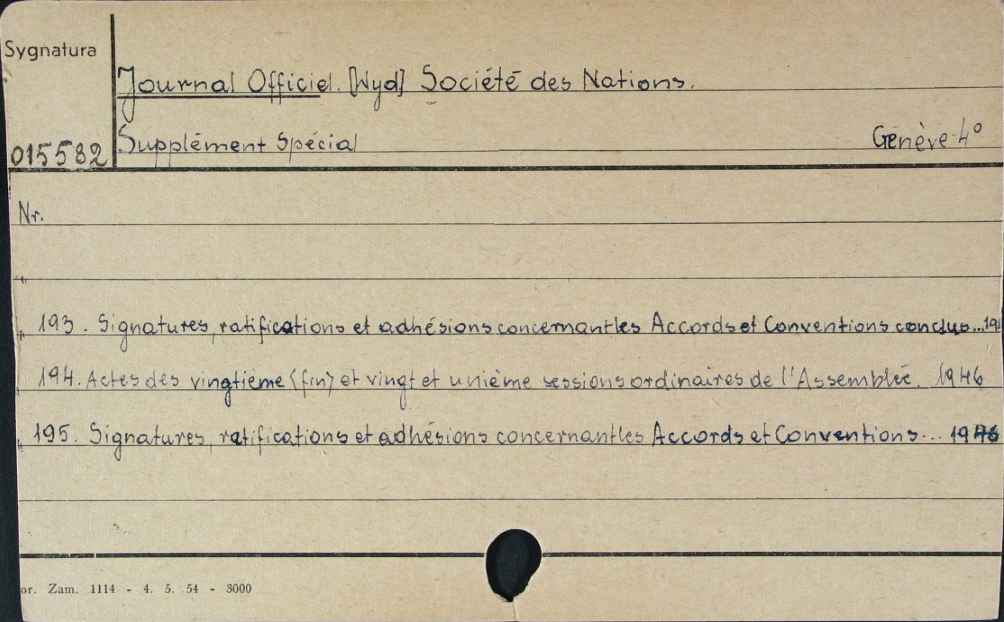 Sygnatura
Journal Officiel. [Wyd] Société des Nations.
Supplément Spécial Genève 4°
015582
Nr.
"
" 193. Signatures, ratifications et adhésions concernant les Accords et Conventions conclus...19
194. Actes des vingtième (fin) et vingt et unième sessions ordinaires de l'Assemblée. 1946
" 195. Signatures, ratifications et adhésions concernant les Accords et Conventions... 1946
or. Zam. 1114 - 4. 5. 54 - 3000